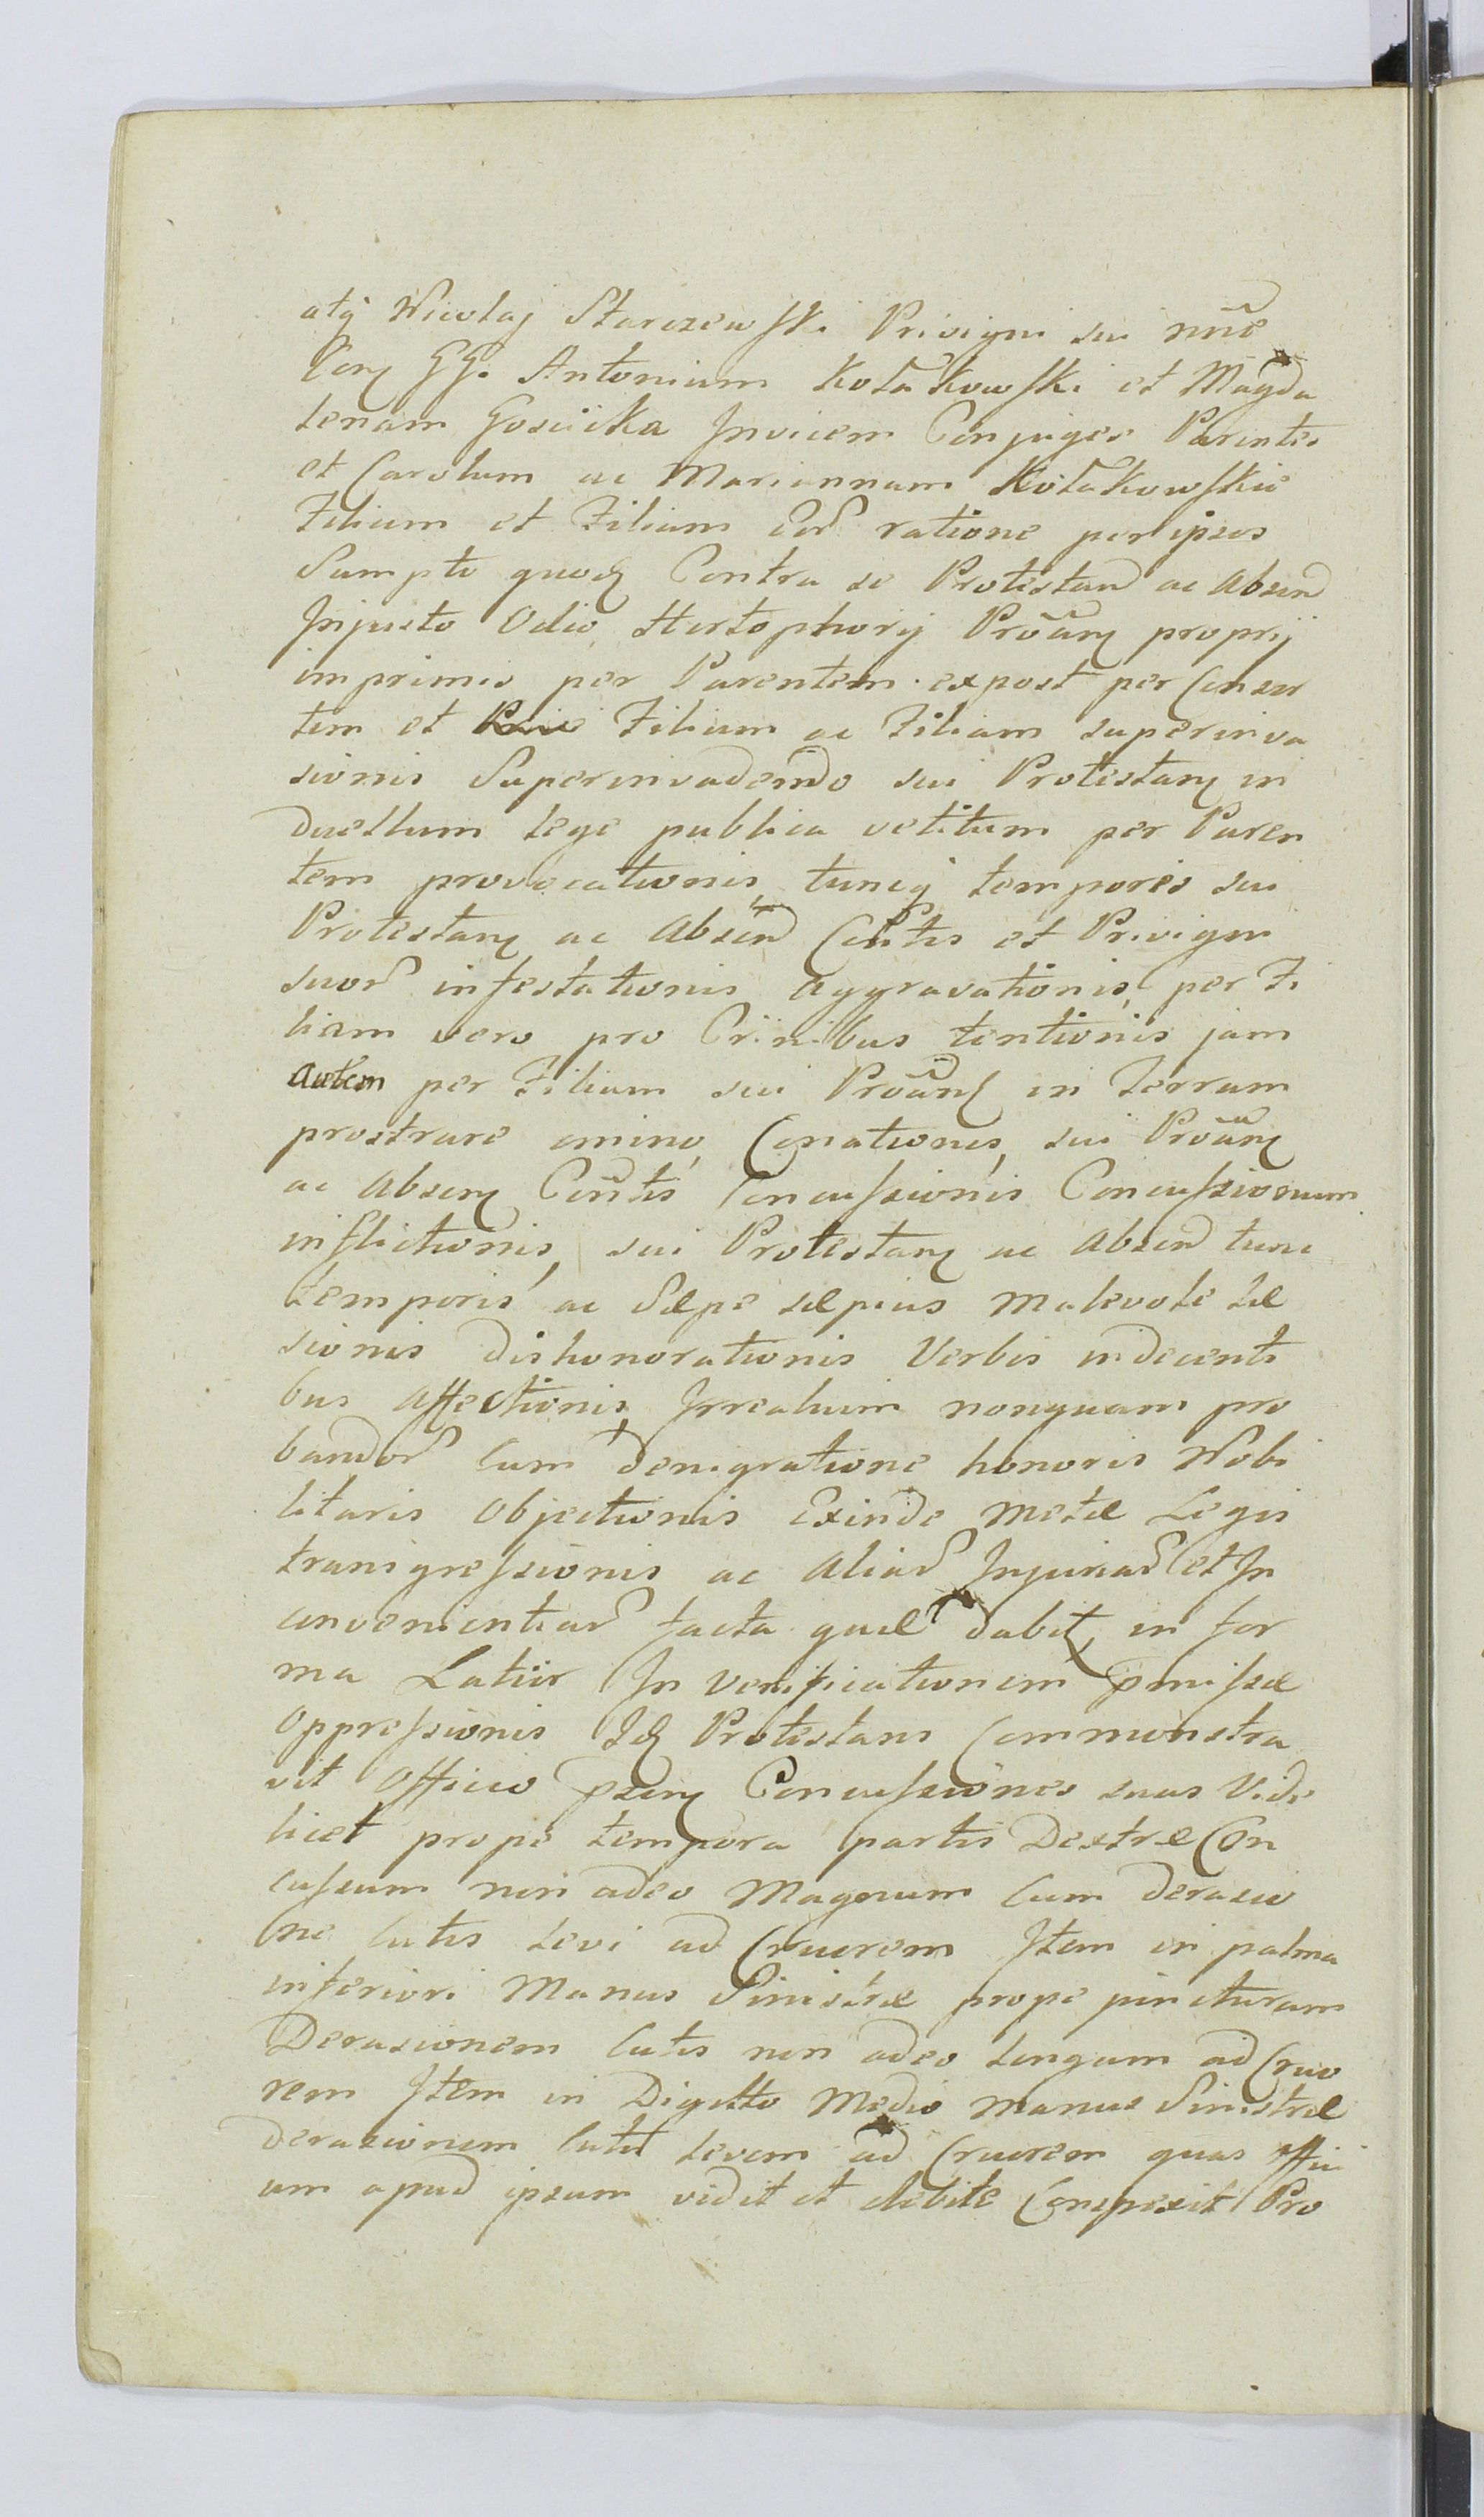 atq Nicolaj Starczewski Privigni sui nne
Conq GG. Antonium Kołakowski et Magda
lenam Gościcka Invicem Conjuges Parentes
et Carolum ac Mariannam Kołakowskie
Filium et Filiam Eor ratione per ipsos
Sumpto quoq Contra se Protestan ac Absen
Injusto Odio, Hortophorij Proanq proprij
imprimis per Parentem expost per Consor
tem et Filium ac Filiam superinva
sionis Superinvadendo sui Protestanq in
duellum lege publica vetitum per Paren
tem provocationis, tuncq temporis sui
Protestanq ac Absen Contis et Privigni
suor infestationis aggravationis, per Fi
liam vero pro Crinibus tentionis jam
autem per Filium sui Proanq in Terram
prostrare animo, Conationis, sui Proanq
ac Absenq Contis Concussionis Concussionum
inflictionis, sui Protestanq ac Absen tunc
temporis ac Sæpe sæpius Malevole læ
sionis dishonorationis Verbis indecenti
bus affectionis, Irrealium nonquam pro
bandor cum denigratione honoris Nobi
litaris Objectionis Exinde metæ Legis
transgressionis ac Aliar Injuriar et In
convenientiar facta quæ dabit, in for
ma Latiir In Verificationem pmissæ
Oppressionis Idq Protestans Commonstra
vit Officio psenq Concussiones suas Vide
licet prope tempora partis Dextræ Con
cussum non adeo Magnum cum derasio
ne Cutis levi ad Cruorem Item in palma
inferiori Manus Sinistræ prope juncturam
Derasionem Cutis non adeo longam ad Cruo
rem Item in Digitto Medio Manus Sinistræ
derasionem Cutis levem ad Cruorem quas Offici
um apud ipsum vidit et debite Conspexit Pro